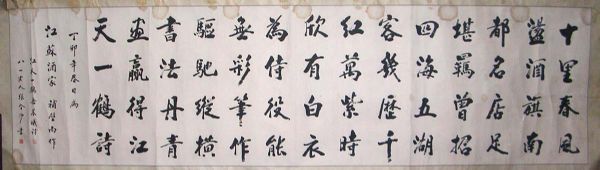 十里春風
盪酒旗南
都名店足
堪羈曾招
四海五湖
客幾歷千
紅萬紫時
欣有白衣
為侍役能
無彩筆作
驅馳縱橫
書法丹青
画贏得江
天一鶴詩
丁卯年春日為
江蘇酒家 補壁而作
江天一鶴
八一